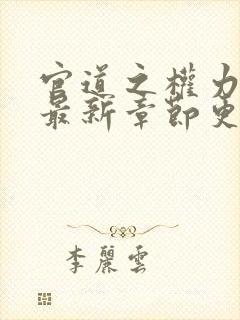 官道之權力
最新章節更
李麗雲